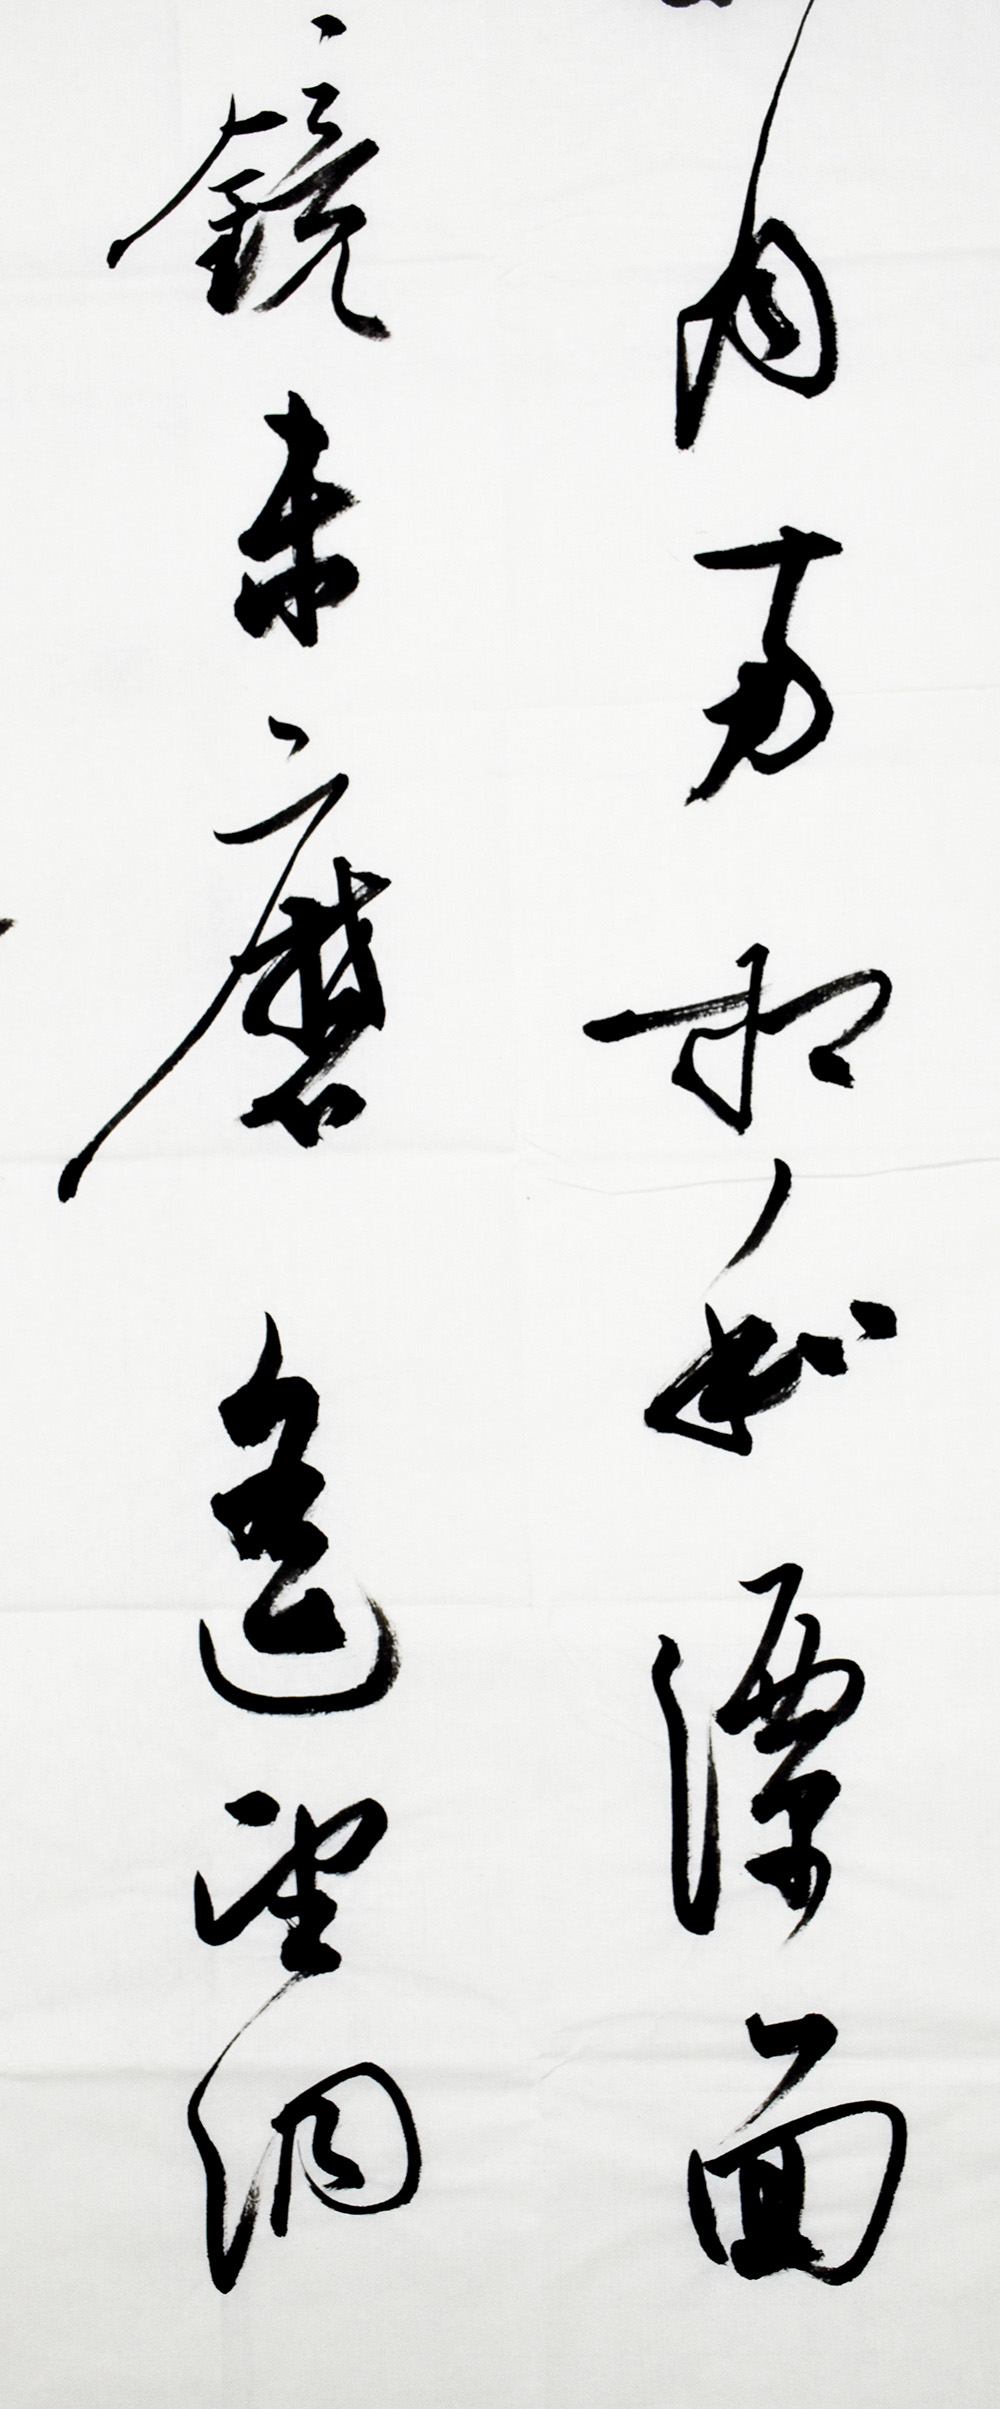 月两相和潭面
镜未磨遥望洞